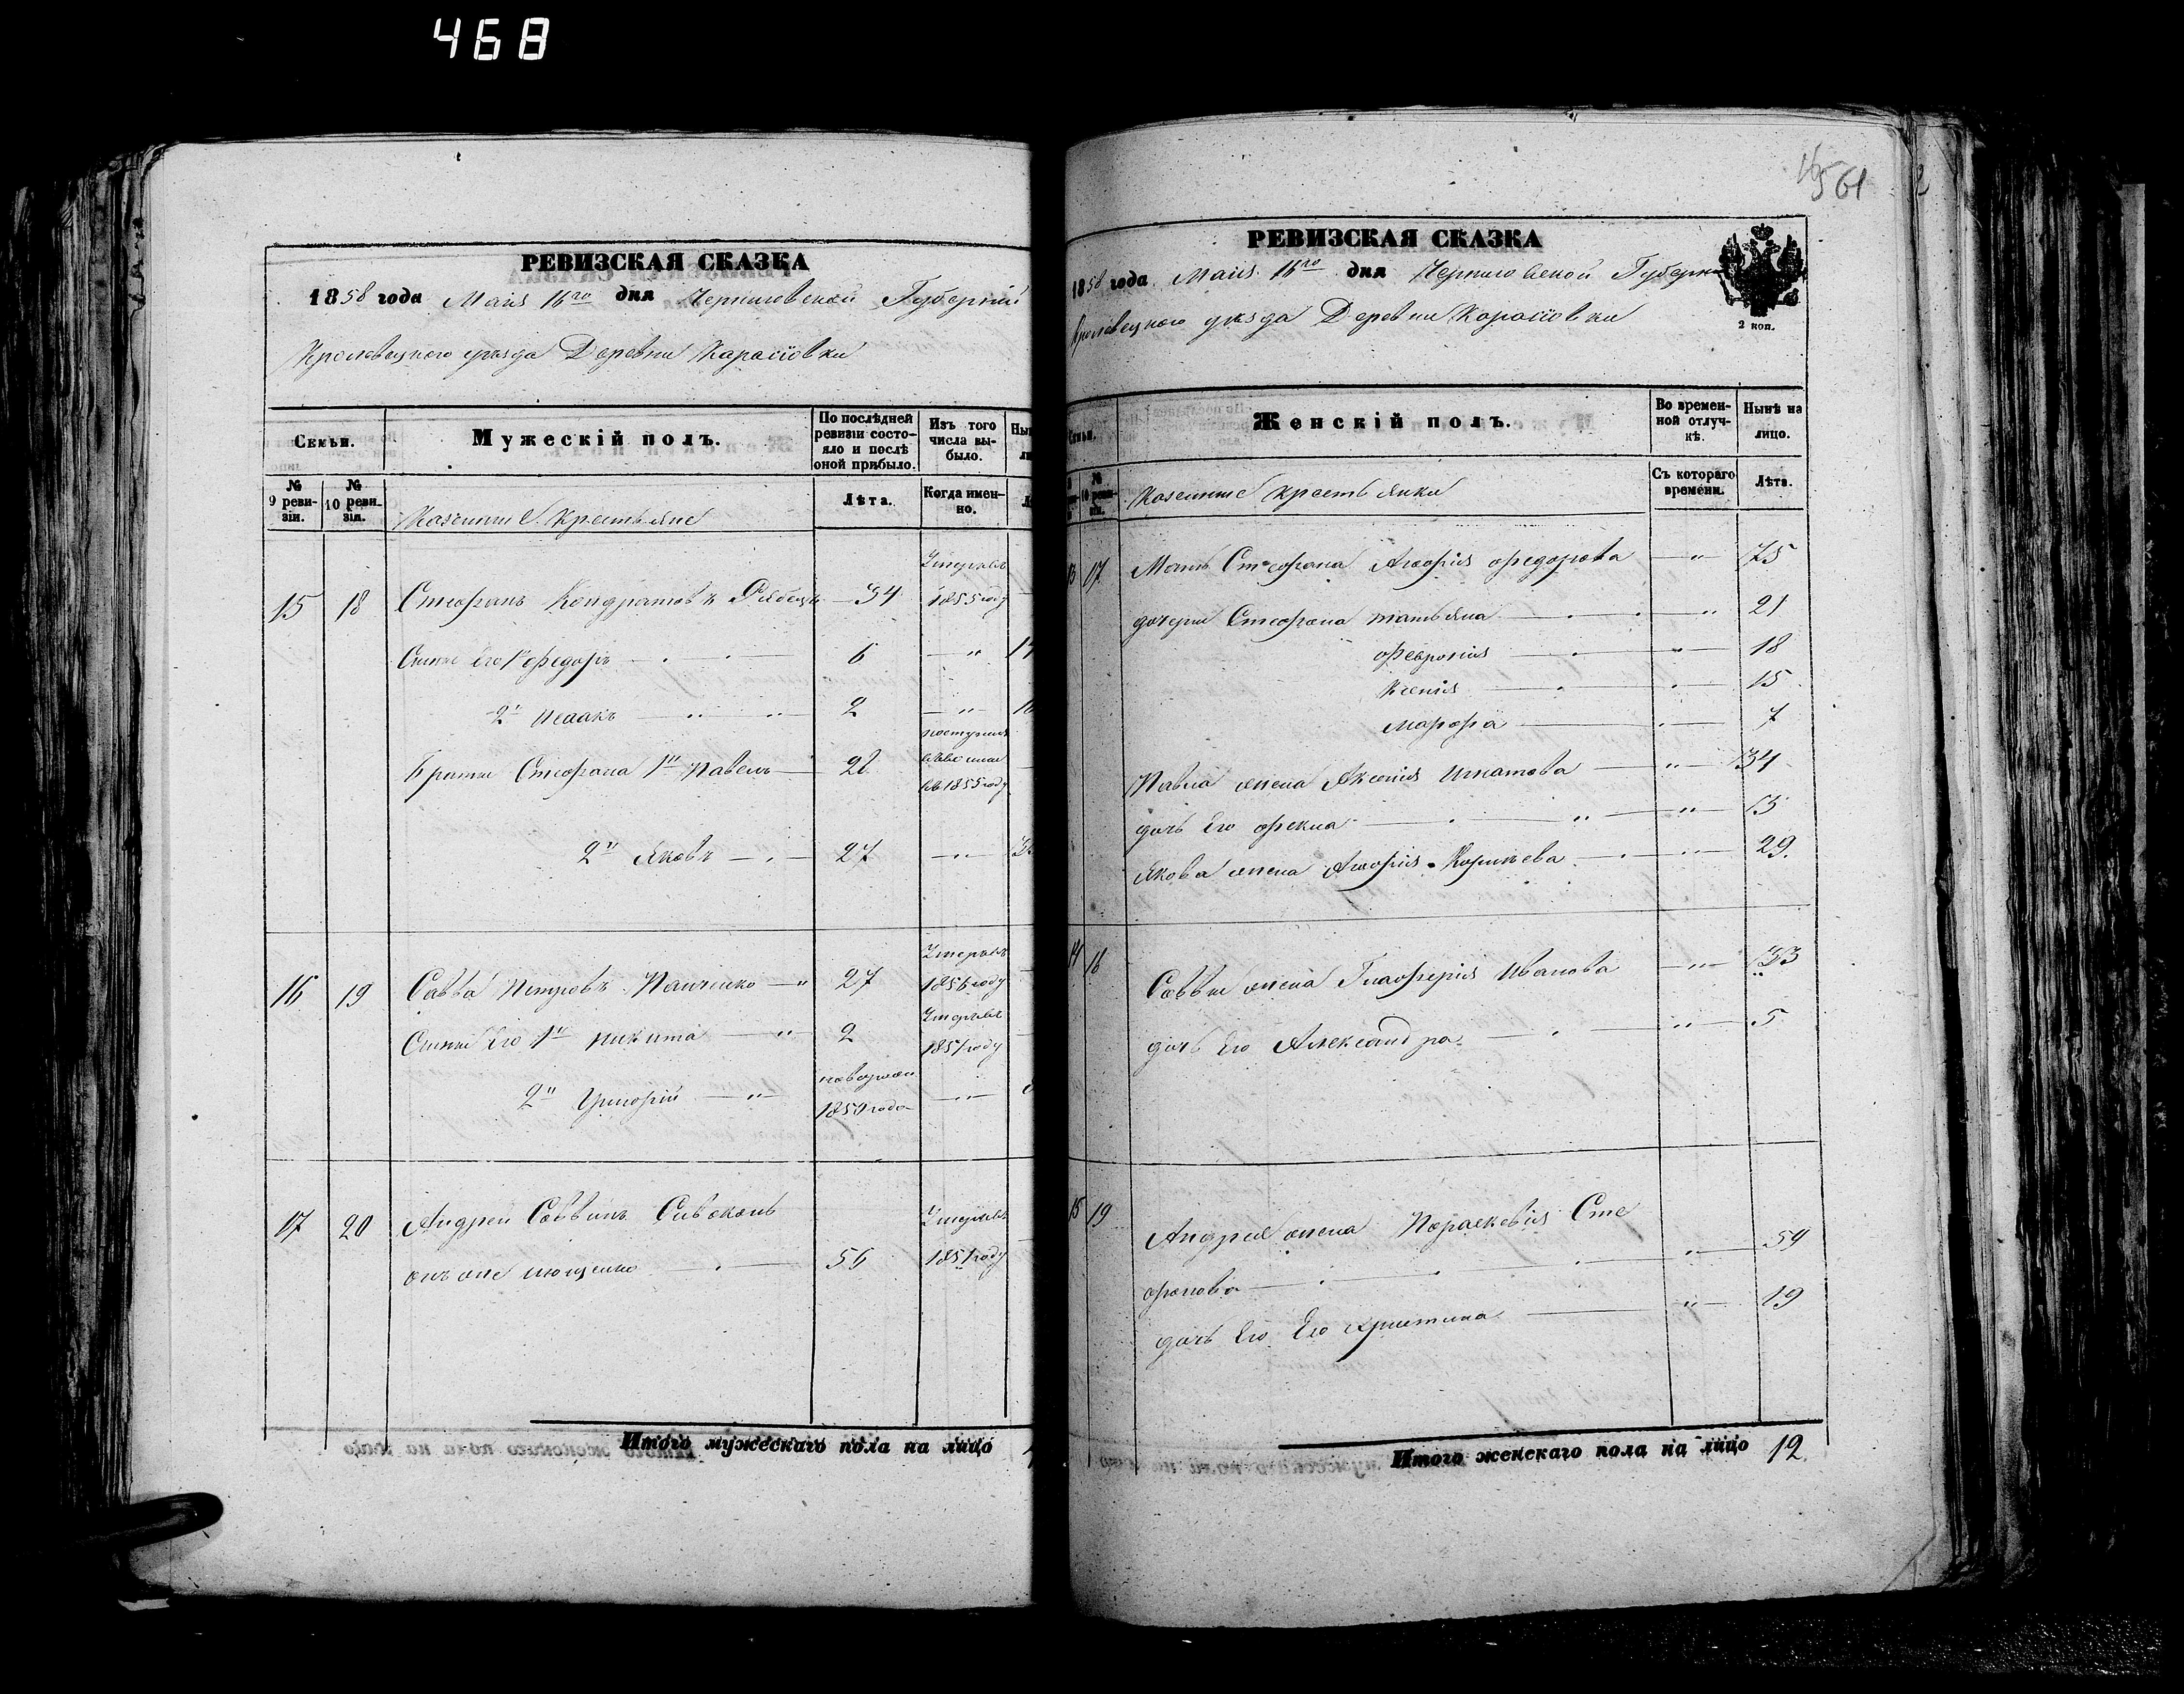 468
РЕВИЗСКАЯ СКАЗКА
1858 года Маія 16го дня Черниговской Губерніи
Кролевецкого уезда Деревни Карасіовки
Семьи.
Мужескій полъ.
По послѣдней ревизіи состояло и послѣ оной прибыло.
Изъ того числа выбыло.
№ 9 ревизіи.
№ 10 ревизіи.
Казенные Крестьяне
Лѣта.
Когда именно.
15 18 Стефанъ Кондратовъ 34 Умеръ въ 1855 году
Сыны Его 1й Федоръ 6 "
2й Исаакъ " " 2 "
Братья Стефана 1й Павелъ 28 в 1855 году
2й Яковъ 27 "
16 19 Савва Петровъ Панченко " 27 Умеръ въ 1856 году
Сыны Его 1й Никита " 2 Умеръ въ 1851 году
2й Григорій " 1850 года "
17 20 Андрей Саввинъ Сивоконь
онъ же Ющенко 56 Умеръ въ 1851 году
Итого мужескаго пола на лицо
561
РЕВИЗСКАЯ СКАЗКА
1858 года Маія 16го дня Черниговской Губерн
Кролевецкого уезда Деревни Карасіовки
2 коп.
Семьи.
Женскій полъ.
Во временной отлучкѣ.
Нынѣ на лицо.
Казенные крестьянки
Съ котораго времени.
Лѣта.
17 Мать Стефана Агафія Федорова " 75
дочери Стефана татьяна " 21
Февронія " 18
Ксенія 15
Марфа 7
Павла жена Аксенія Игнатова " 34
дочь Его Фекла " " 13
Якова жена Агафія Корнѣева " 29
16 Саввы жена Глафирія Иванова " 33
дочь Его Александра " 5
15 19 Андрея жена Параскевія Сте
фанова " 59
дочь Его Его Христина " 19
Итого женскаго пола на лицо 12